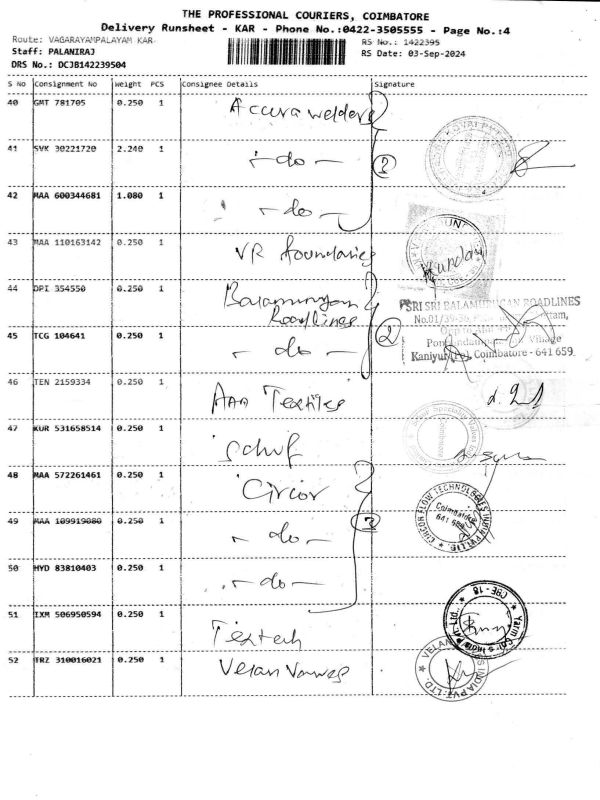 THE PROFESSIONAL COURIERS, COIMBATORE
Delivery Runsheet - KAR - Phone No.:0422-3505555 - Page No.:4
Route: VAGARAYAMPALAYAM KAR
RS No.: 1422395
Staff: PALANIRAJ
RS Date: 03-Sep-2024
DRS No.: DCJB142239504
S No Consignment No Weight PCS Consignee Details Signature
40 GMT 781705 0.250 1 Accura welders
41 SVK 30221720 2.240 1 - do -
3
42 MAA 600344681 1.080 1 - do -
43 MAA 110163142 0.250 1 VR foundaries
44 DPI 354550 0.250 1 Balamurugan Roadlines
SRI SRI BALAMURUGAN ROADLINES
No.01/39-56,
Village
Kaniyur(Po), Coimbatore - 641 659.
45 TCG 104641 0.250 1 - do -
2
46 TEN 2159334 0.250 1 AAA Textiles
47 KUR 531658514 0.250 1
48 MAA 572261461 0.250 1 Circor
CIRCOR FLOW TECHNOLOGIES INDIA PVT.LTD.
Coimbatore
641 659
49 MAA 109919080 0.250 1 - do -
3
50 HYD 83810403 0.250 1 - do -
51 IXM 506950594 0.250 1 Textech
CBE - 18
52 TRZ 310016021 0.250 1 Velan Valves
VELAN VALVES INDIA PVT.LTD.